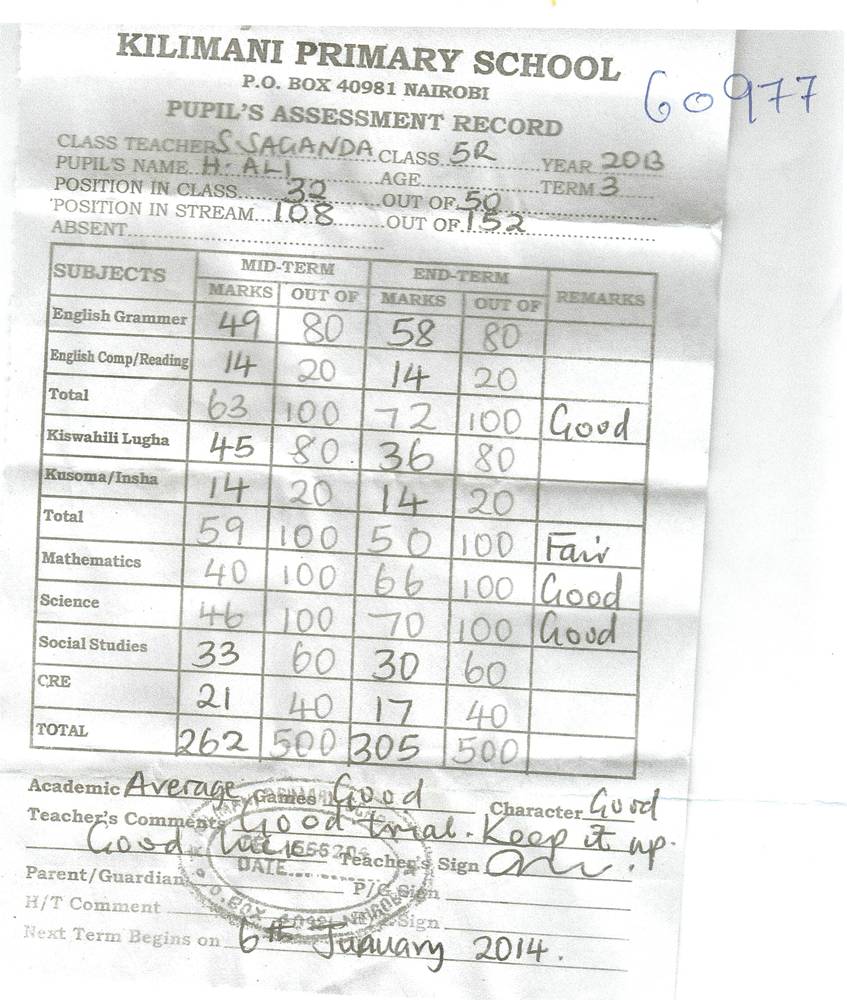 KILIMANI PRIMARY SCHOOL
P.O. BOX 40981 NAIROBI
60977
PUPIL'S ASSESSMENT RECORD
CLASS TEACHER S. SAGANDA CLASS 5R YEAR 2013
PUPIL'S NAME H. ALI AGE TERM 3
POSITION IN CLASS 32 OUT OF 50
POSITION IN STREAM 108 OUT OF 152
ABSENT
SUBJECTS MID-TERM END-TERM REMARKS
MARKS OUT OF MARKS OUT OF
English Grammer 49 80 58 80
English Comp/Reading 14 20 14 20
Total 63 100 72 100 Good
Kiswahili Lugha 45 80 36 80
Kusoma/Insha 14 20 14 20
Total 59 100 50 100 Fair
Mathematics 40 100 66 100 Good
Science 46 100 70 100 Good
Social Studies 33 60 30 60
CRE 21 40 17 40
TOTAL 262 500 305 500
Academic Average Games Good Character Good
Teacher's Comments Good trial. Keep it up.
Good Teacher's Sign
DATE
Parent/Guardian P/G Sign
H/T Comment Sign
P.O. BOX 40981 NAIROBI
Next Term Begins on 6th January 2014.